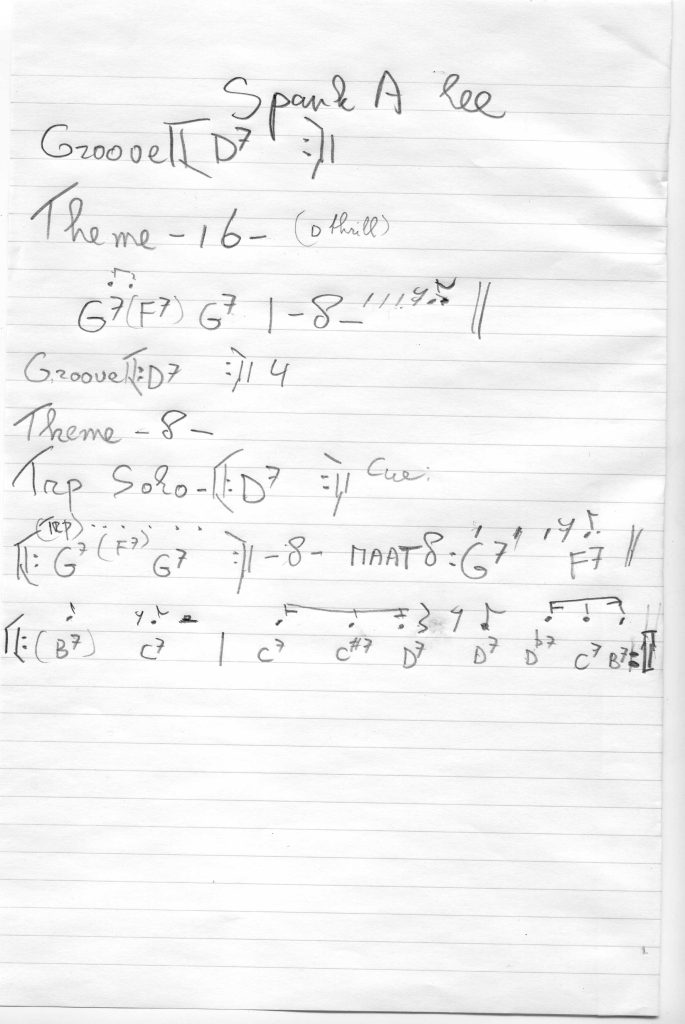 Spank A Lee
Groove ‖: D7 :‖
Theme -16- (D thrill)
G7 (F7) G7 | -8- ||
Groove ‖: D7 :‖ 4
Theme -8-
Trp Solo - ‖: D7 :‖ Cue:
(Trp)
‖: G7 (F7) G7 :‖ -8- MAAT 8: G7 F7 ||
‖: (B7) C7 | C7 C#7 D7 D7 Db7 C7 B7 :‖